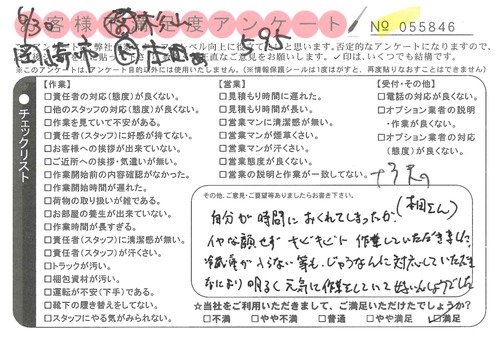 お客様満足度アンケート
No 055846
6/30
岡崎市
595
※このアンケートは、アンケート目的以外には使用いたしません。(※情報保護シールは1度はがすと、再度貼りなおすことはできません。)
チェックリスト
【作業】
□責任者の対応(態度)が良くない。
□他のスタッフの対応(態度)が良くない。
□作業を見ていて不安がある。
□責任者(スタッフ)に好感が持てない。
□お客様への挨拶が出来ていない。
□ご近所への挨拶・気遣いが無い。
□作業開始前の内容確認がなかった。
□作業開始時間が遅れた。
□荷物の取り扱いが雑である。
□お部屋の養生が出来ていない。
□作業時間が長すぎる。
□責任者(スタッフ)に清潔感が無い。
□責任者(スタッフ)が汗くさい。
□トラックが汚い。
□梱包資材が汚い。
□運転が安全(下手)である。
□靴下の履き替えをしてない。
□スタッフにやる気がみられない。
【営業】
□見積もり時間に遅れた。
□見積もり時間が長い。
□営業マンに清潔感が無い。
□営業マンが煙草くさい。
□営業マンが汗くさい。
□営業態度が良くない。
□営業の説明と作業が一致してない。
【受付・その他】
□電話の対応が良くない。
□オプション業者の説明
・作業が良くない。
□オプション業者の対応
(態度)が良くない。
その他、ご意見・ご要望等ありましたらお書き下さい。
自分が時間におくれてしまったが、
イヤな顔せず テキパキと 作業していただきました。
冷蔵庫が入らない等も、じゅうなんに対応していただき
なにより明るく元気に作業をしていて
☆当社をご利用いただきまして、ご満足いただけたでしょうか?
□不満 □やや不満 □普通 □やや満足 ☑満足